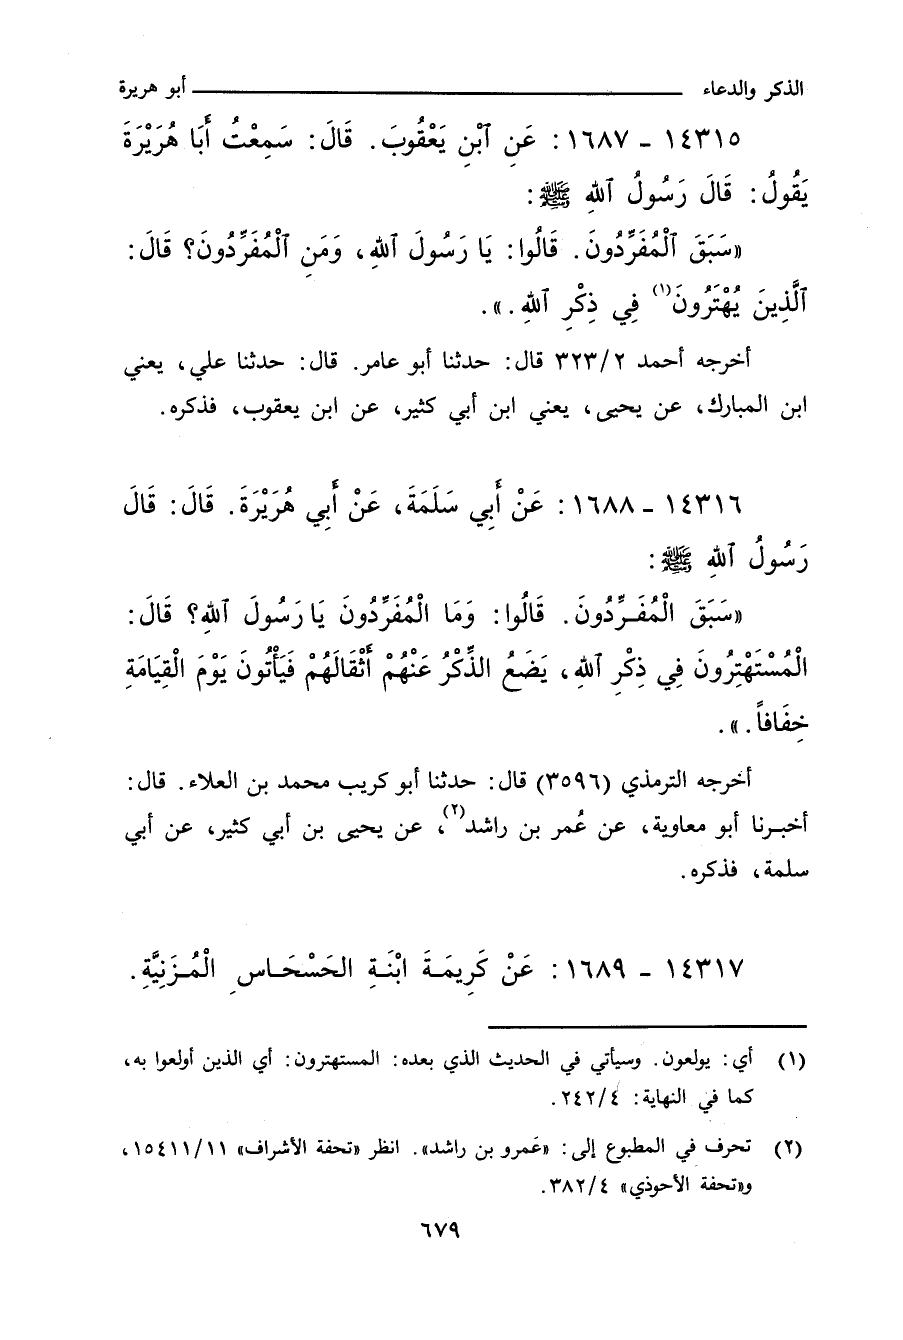 الذكر والدعاء ــــــــــــــــــــ أبو هريرة
١٤٣١٥ - ١٦٨٧ : عَنِ ٱبْنِ يَعْقُوبَ. قَالَ: سَمِعْتُ أَبَا هُرَيْرَةَ
يَقُولُ: قَالَ رَسُولُ ٱللهِ ﷺ:
«سَبَقَ ٱلْمُفَرِّدُونَ. قَالُوا: يَا رَسُولَ ٱللهِ، وَمَنِ ٱلْمُفَرِّدُونَ؟ قَالَ:
ٱلَّذِينَ يُهْتَرُونَ(١) فِي ذِكْرِ ٱللهِ.».
أخرجه أحمد ٣٢٣/٢ قال: حدثنا أبو عامر. قال: حدثنا علي، يعني
ابن المبارك، عن يحيى، يعني ابن أبي كثير، عن ابن يعقوب، فذكره.
١٤٣١٦ - ١٦٨٨ : عَنْ أَبِي سَلَمَةَ، عَنْ أَبِي هُرَيْرَةَ. قَالَ: قَالَ
رَسُولُ ٱللهِ ﷺ:
«سَبَقَ الْمُفَرِّدُونَ. قَالُوا: وَمَا الْمُفَرِّدُونَ يَا رَسُولَ ٱللهِ؟ قَالَ:
الْمُسْتَهْتِرُونَ فِي ذِكْرِ ٱللهِ، يَضَعُ الذِّكْرُ عَنْهُمْ أَثْقَالَهُمْ فَيَأْتُونَ يَوْمَ الْقِيَامَةِ
خِفَافاً.».
أخرجه الترمذي (٣٥٩٦) قال: حدثنا أبو كريب محمد بن العلاء. قال:
أخبرنا أبو معاوية، عن عُمر بن راشد(٢)، عن يحيى بن أبي كثير، عن أبي
سلمة، فذكره.
١٤٣١٧ - ١٦٨٩ : عَنْ كَرِيمَةَ ابْنَةِ الحَسْحَاسِ الْمُزَنِيَّةِ.
(١) أي: يولعون. وسيأتي في الحديث الذي بعده: المستهترون: أي الذين أولعوا به،
كما في النهاية: ٢٤٢/٤.
(٢) تحرف في المطبوع إلى: «عَمرو بن راشد». انظر «تحفة الأشراف» ١٥٤١١/١١،
و«تحفة الأحوذي» ٣٨٢/٤.
٦٧٩